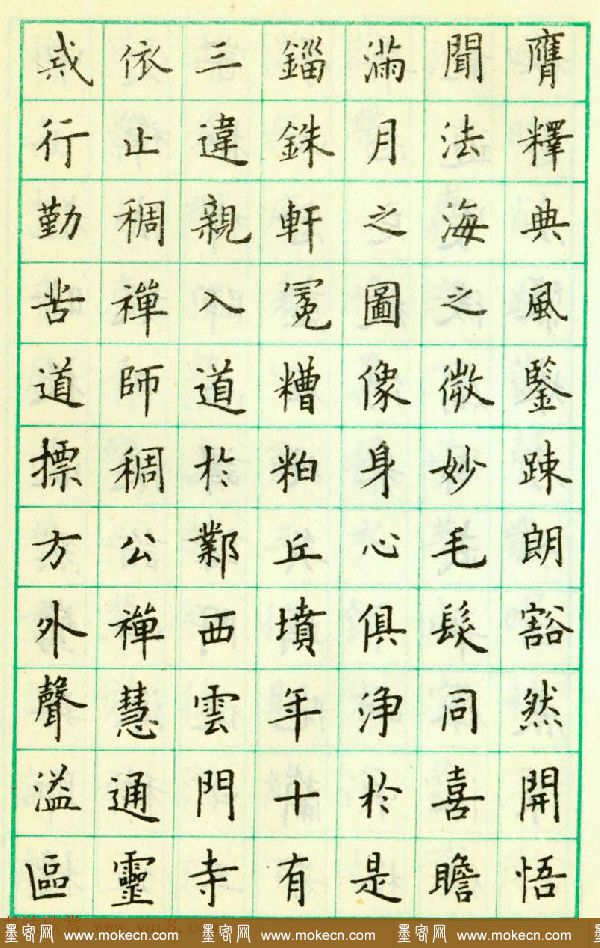 膺釋典風鑒踈朗豁然開悟
聞法海之微妙毛髮同喜瞻
滿月之圖像身心俱淨於是
錙銖軒冕糟粕丘墳年十有
三違親入道於鄴西雲門寺
依止稠禪師稠公禪慧通靈
戒行勤苦道摽方外聲溢區
墨密网 www.mokecn.com 墨密网 www.mokecn.com 墨密网 www.mokecn.com